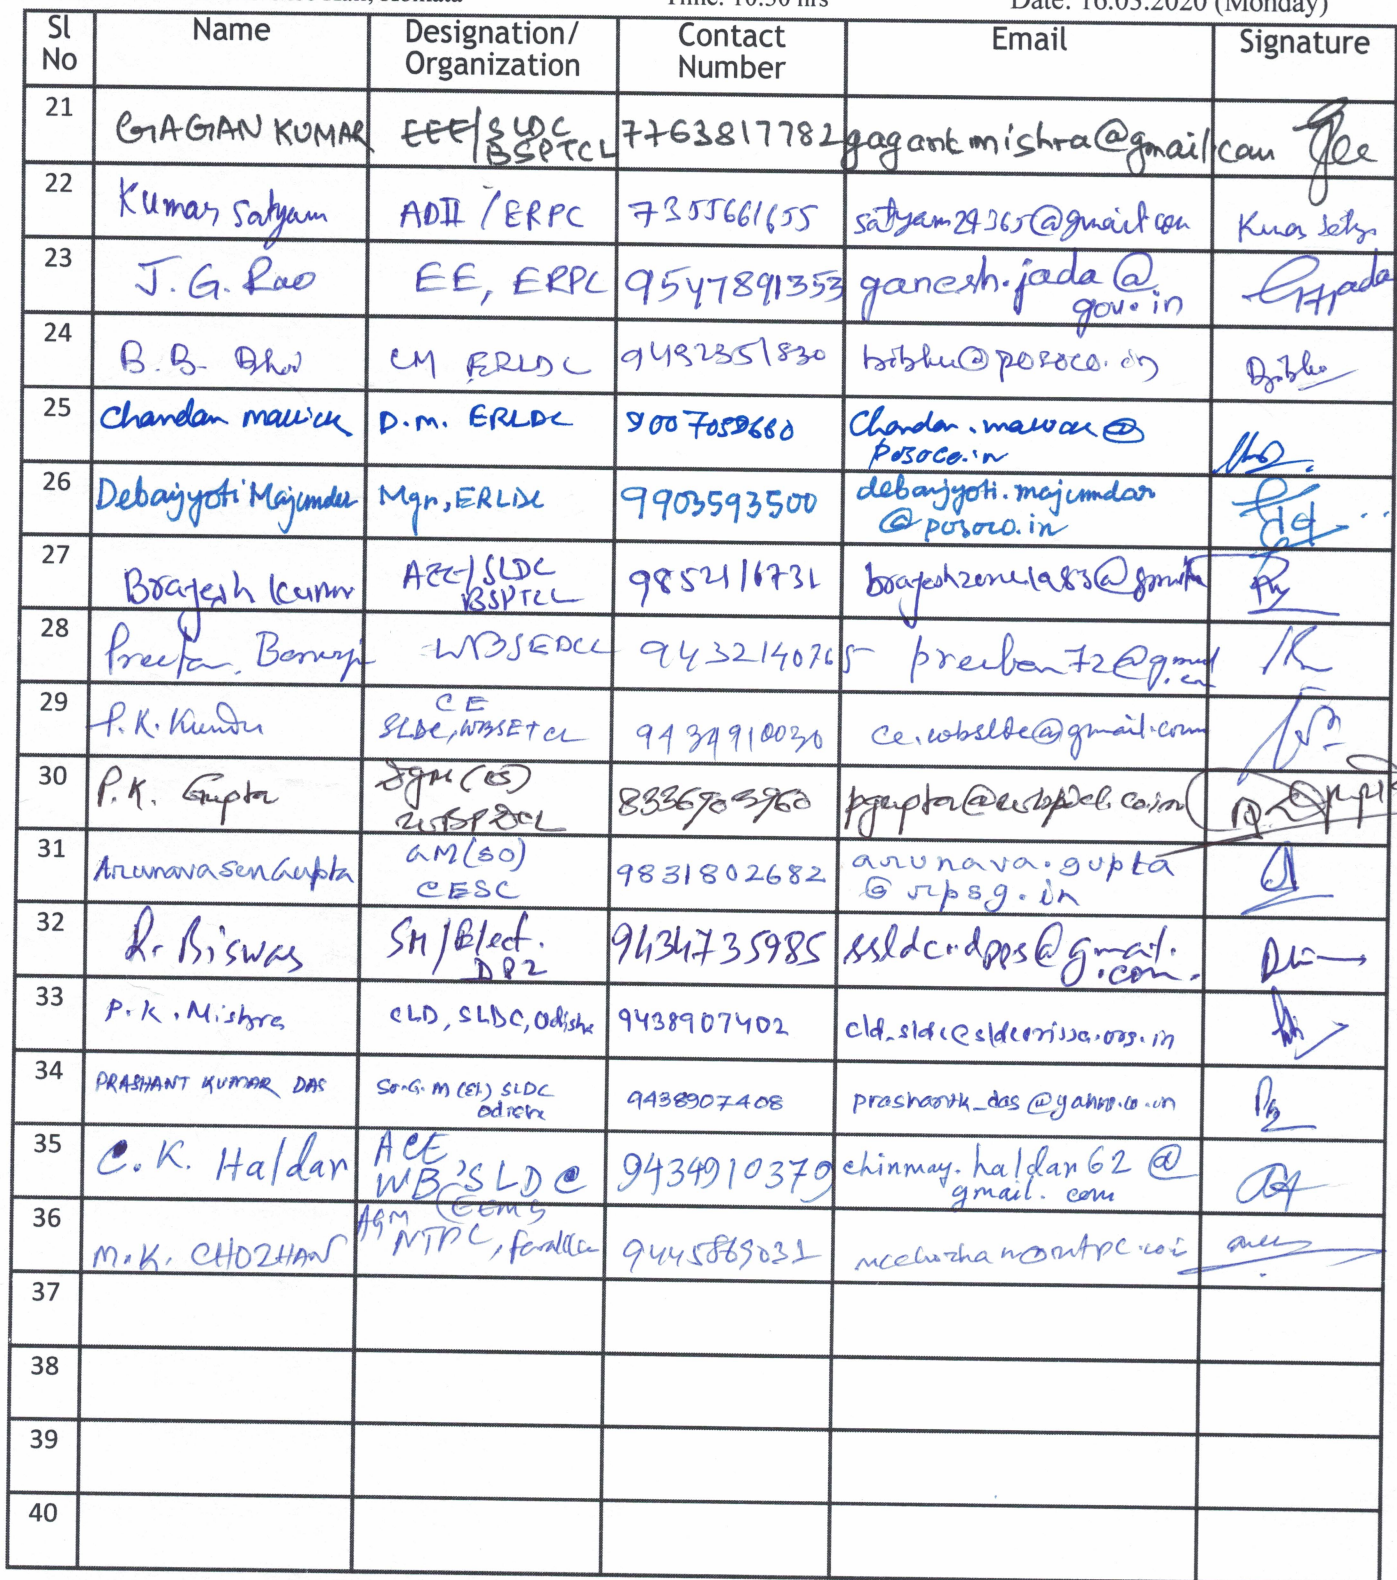 Time: 10:30 hrs Date: 16.03.2020 (Monday)
Sl No Name Designation/ Organization Contact Number Email Signature
21 GAGAN KUMAR EEE/SLDC BSPTCL 7763817782 gagankmishra@gmail.com
22 Kumar Satyam ADII / ERPC 7355661655 satyam24365@gmail.com
23 J. G. Rao EE, ERPC 9547891353 ganesh.jada@
gov.in
24 B. B. CM ERLDC 9432351830 bibhu@posoco.in
25 Chandan mallick D.m. ERLDC 9007059660 Chandan.mallick@
posoco.in
26 Debajyoti Majumder Mgr, ERLDC 9903593500 debajyoti.majumdar
@posoco.in
27 Brajesh Kumar AEE/SLDC BSPTCL 9852116731
28 WBSEDCL 9432140765 preeban72@gmail
29 P. K. Kundu CE
SLDC, WBSETCL 9434910030 ce.wbsldc@gmail.com
30 P.K. Gupta WBPDCL 8336903960 pgupta@wbpdcl.co.in
31 Arunava Sen Gupta GM(SO)
CESC 9831802682 arunava.gupta
@rpsg.in
32 R. Biswas SM/Elect. 9434735985 ssldc.dpps@gmail.
.com.
33 P. K. Mishra CLD, SLDC, Odisha 9438907402 cld_sldc@sldcorissa.org.in
34 PRASHANT KUMAR DAS Sr.G.M (El) SLDC
Odisha 9438907408 prashantk_das@yahoo.co.in
35 C. K. Haldar ACE
WB SLDC 9434910379 chinmay.haldar62@
gmail.com
36 M.K. CHOZHAN AGM (EEMG
NTPC, Farakka 9445869031
37
38
39
40